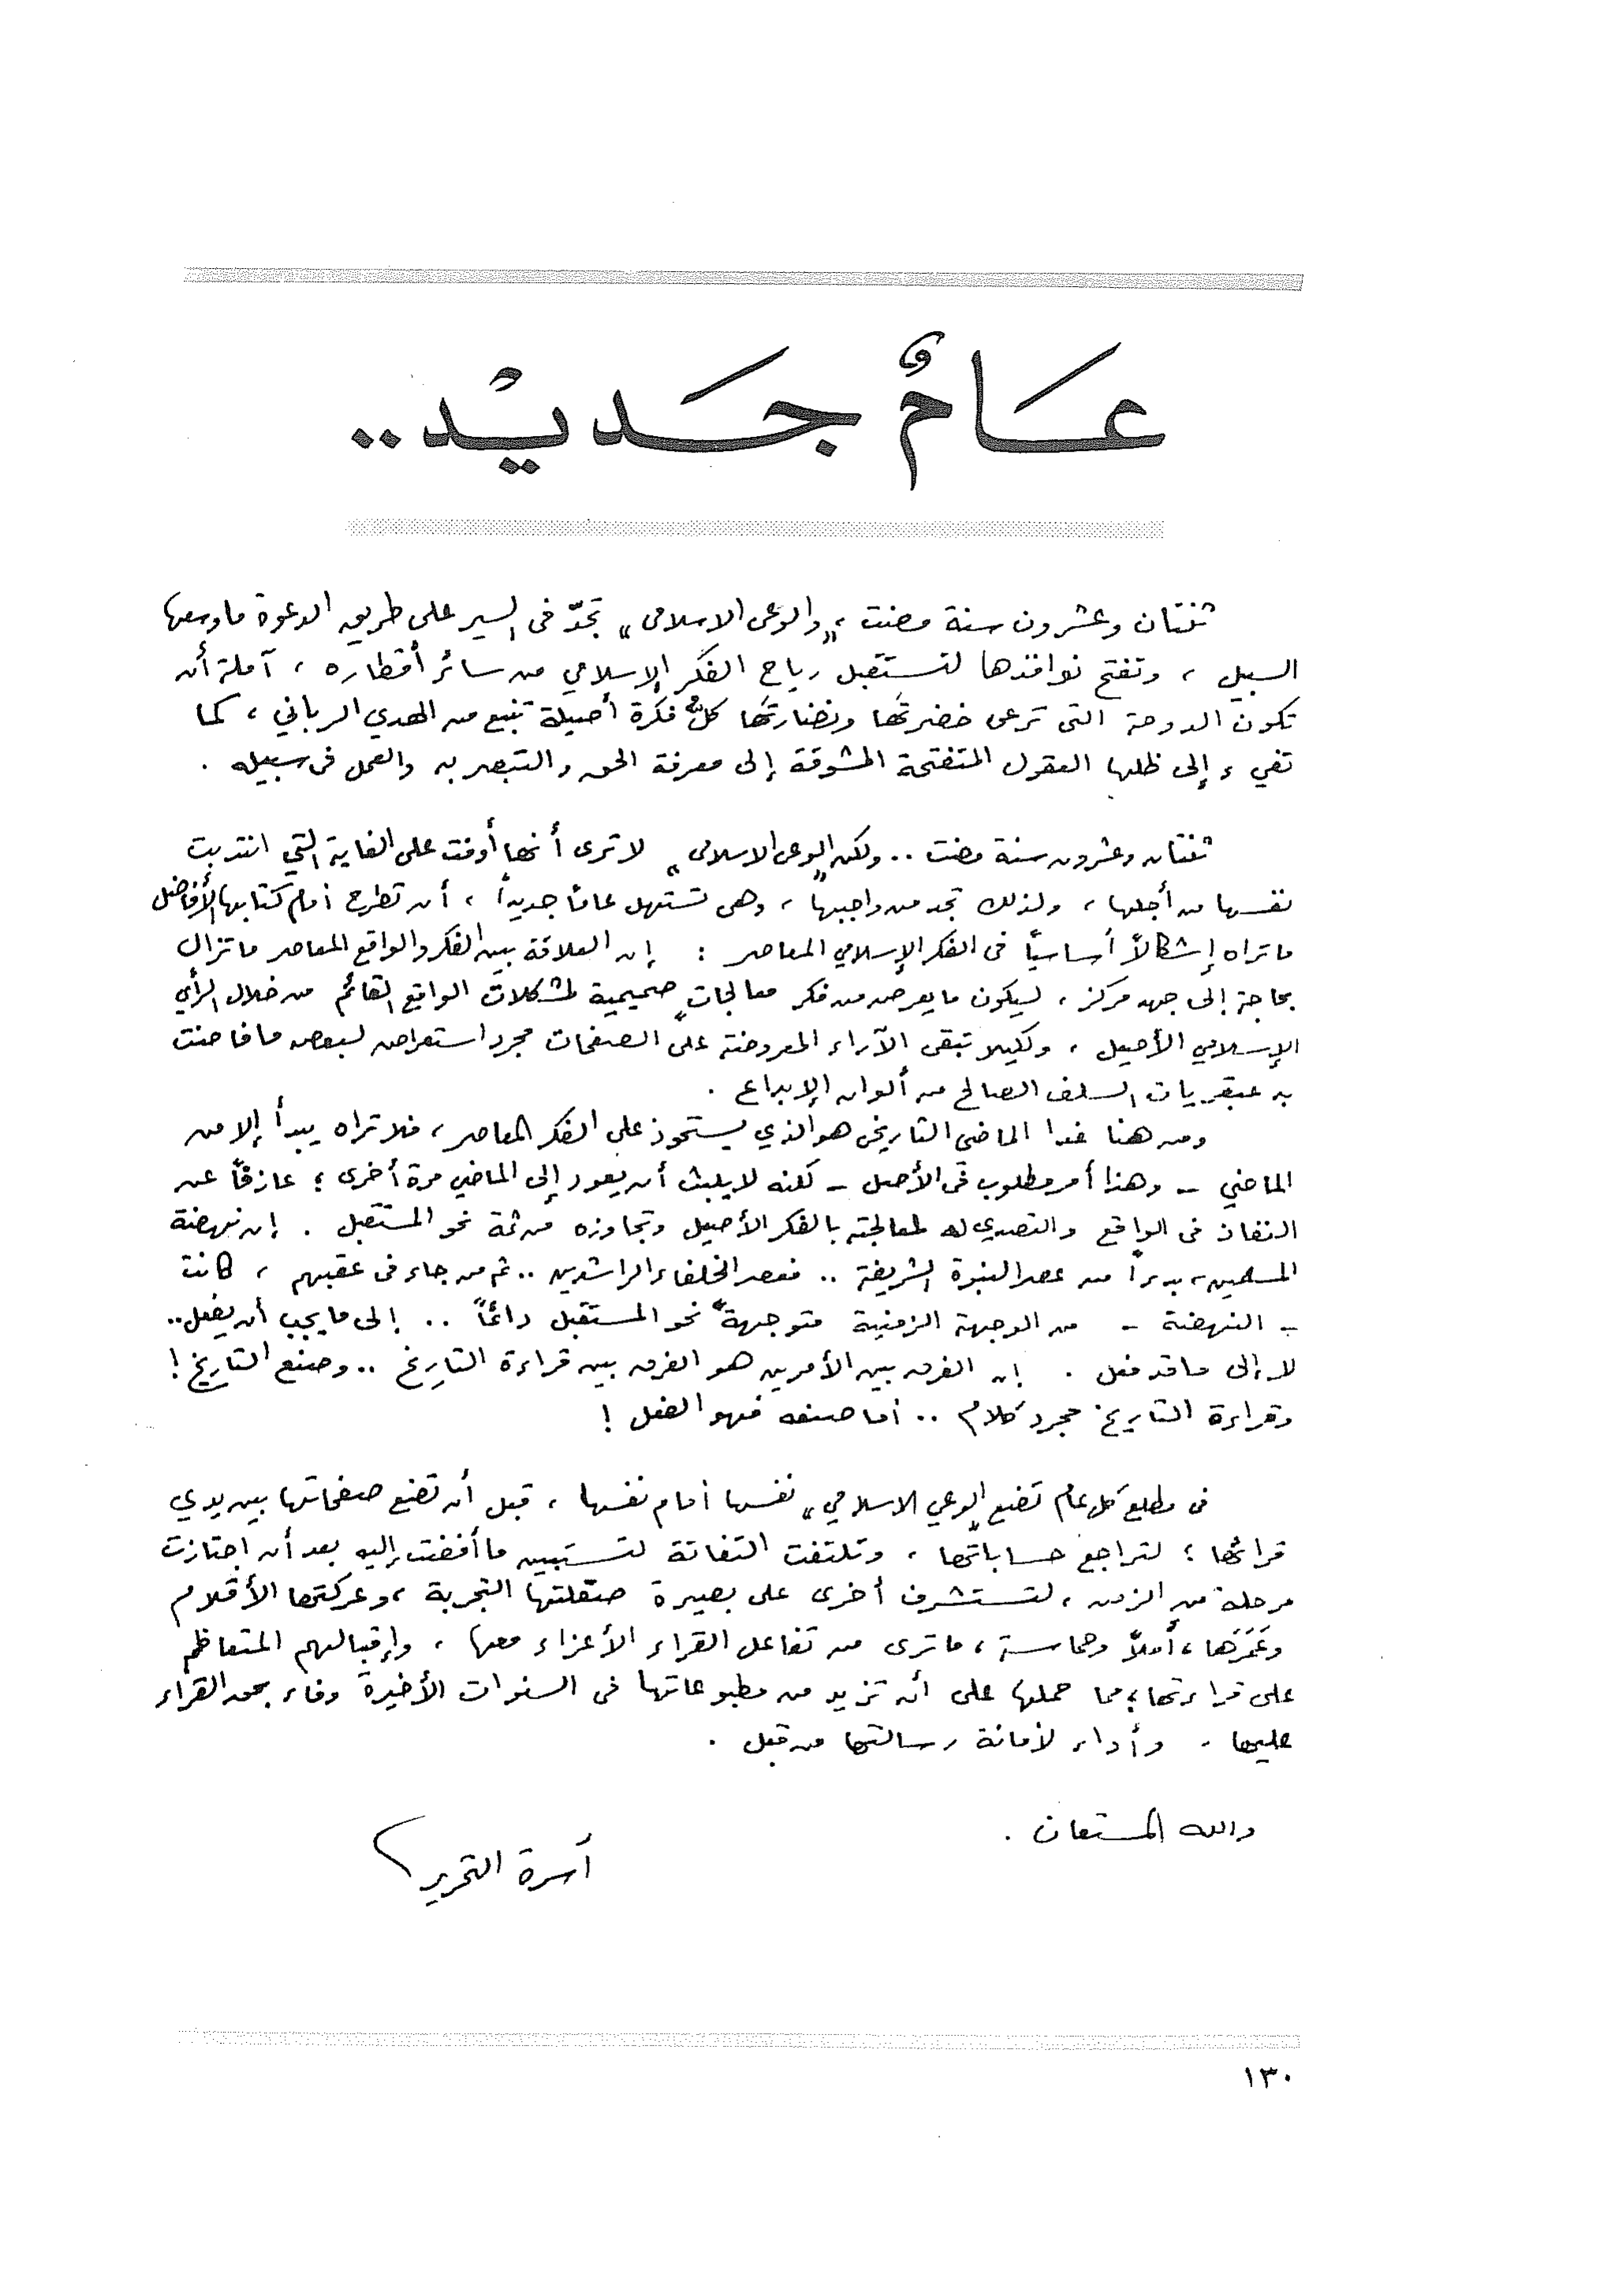 عَامٌ جَديْد..
ثنتان وعشرون سنة مضت، و«الوعى الاسلامى» تجدّ فى السير على طريق الدعوة ما وسعها
السبيل، وتفتح نوافذها لتستقبل رياح الفكر الإسلامي من سائر أقطاره، آملة أن
تكون الدوحة التى ترعى خضرتَها ونضارتَها كلُّ فكرة أصيلة تنبع من الهدي الرباني، كما
تفيء إلى ظلها العقول المتفتحة المشوقة إلى معرفة الحق والتبصر به والعمل فى سبيله.
ثنتان وعشرون سنة مضت.. ولكن «الوعى الاسلامى» لا ترى أنها أوفت على الغاية التي انتدبت
نفسها من أجلها، ولذلك تجد من واجبها، وهى تستهل عامًا جديدًا، أن تطرح أمام كتابها الأفاضل
ما تراه إشكالاً أساسيًا فى الفكر الإسلامي المعاصر: إن العلاقة بين الفكر والواقع المعاصر ما تزال
بحاجة إلى جهد مركز، ليكون ما يعرض من فكر معالجاتٍ صميمية لمشكلات الواقع القائم من خلال الرأي
الإسلامي الأصيل، ولكيلا تبقى الآراء المعروضة على الصفحات مجرد استعراض لبعض ما فاضت
به عبقريات السلف الصالح من ألوان الإبداع.
ومن هنا غدا الماضى التاريخى هو الذي يستحوذ على الفكر المعاصر، فلا تراه يبدأ إلا من
الماضي - وهذا أمر مطلوب فى الأصل - لكنه لا يلبث أن يعود إلى الماضي مرة أخرى؛ عازفًا عن
النفاذ فى الواقع والتصدي له لمعالجته بالفكر الأصيل وتجاوزه من ثمة نحو المستقبل. إن نهضة
المسلمين، بدءًا من عصر النبوة الشريفة.. فعصر الخلفاء الراشدين.. ثم من جاء فى عقبهم، كانت
- النهضة - من الوجهة الزمنية متوجهةً نحو المستقبل دائمًا.. إلى ما يجب أن يفعل..
لا إلى ما قد فعل. إن الفرق بين الأمرين هو الفرق بين قراءة التاريخ.. وصنع التاريخ!
وقراءة التاريخ مجرد كلام.. أما صنعه فهو الفعل!
فى مطلع كل عام تضع «الوعي الاسلامي» نفسها أمام نفسها، قبل أن تضع صفحاتها بين يدي
قرائها؛ لتراجع حساباتها، وتلتفت التفاتة لتستبين ما أفضت إليه بعد أن اجتازت
مرحلة من الزمن، لتستشرف أخرى على بصيرة صقلتها التجربة، وعركتها الأقلام
وغَمَرَها، أملاً وحماسة، ما ترى من تفاعل القراء الأعزاء معها، وإقبالهم المتعاظم
على قراءتها؛ مما حملها على أن تزيد من مطبوعاتها فى السنوات الأخيرة وفاء بحق القراء
عليها، وأداء لأمانة رسالتها من قبل.
والله المستعان.
أسرة التحرير
١٣٠